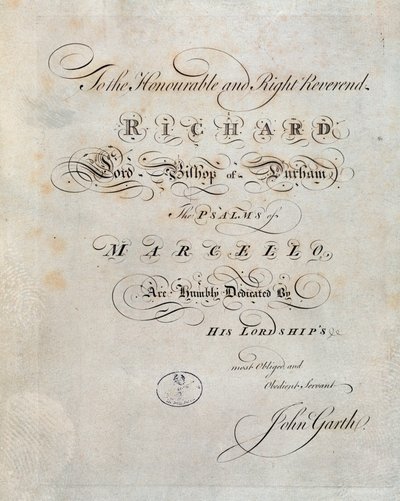 To the Honourable and Right Reverend
RICHARD
Lord Bishop of Durham
The PSALMS of
MARCELLO,
Are Humbly Dedicated By
HIS LORDSHIP'S
most Obliged and
Obedient Servant
John Garth.